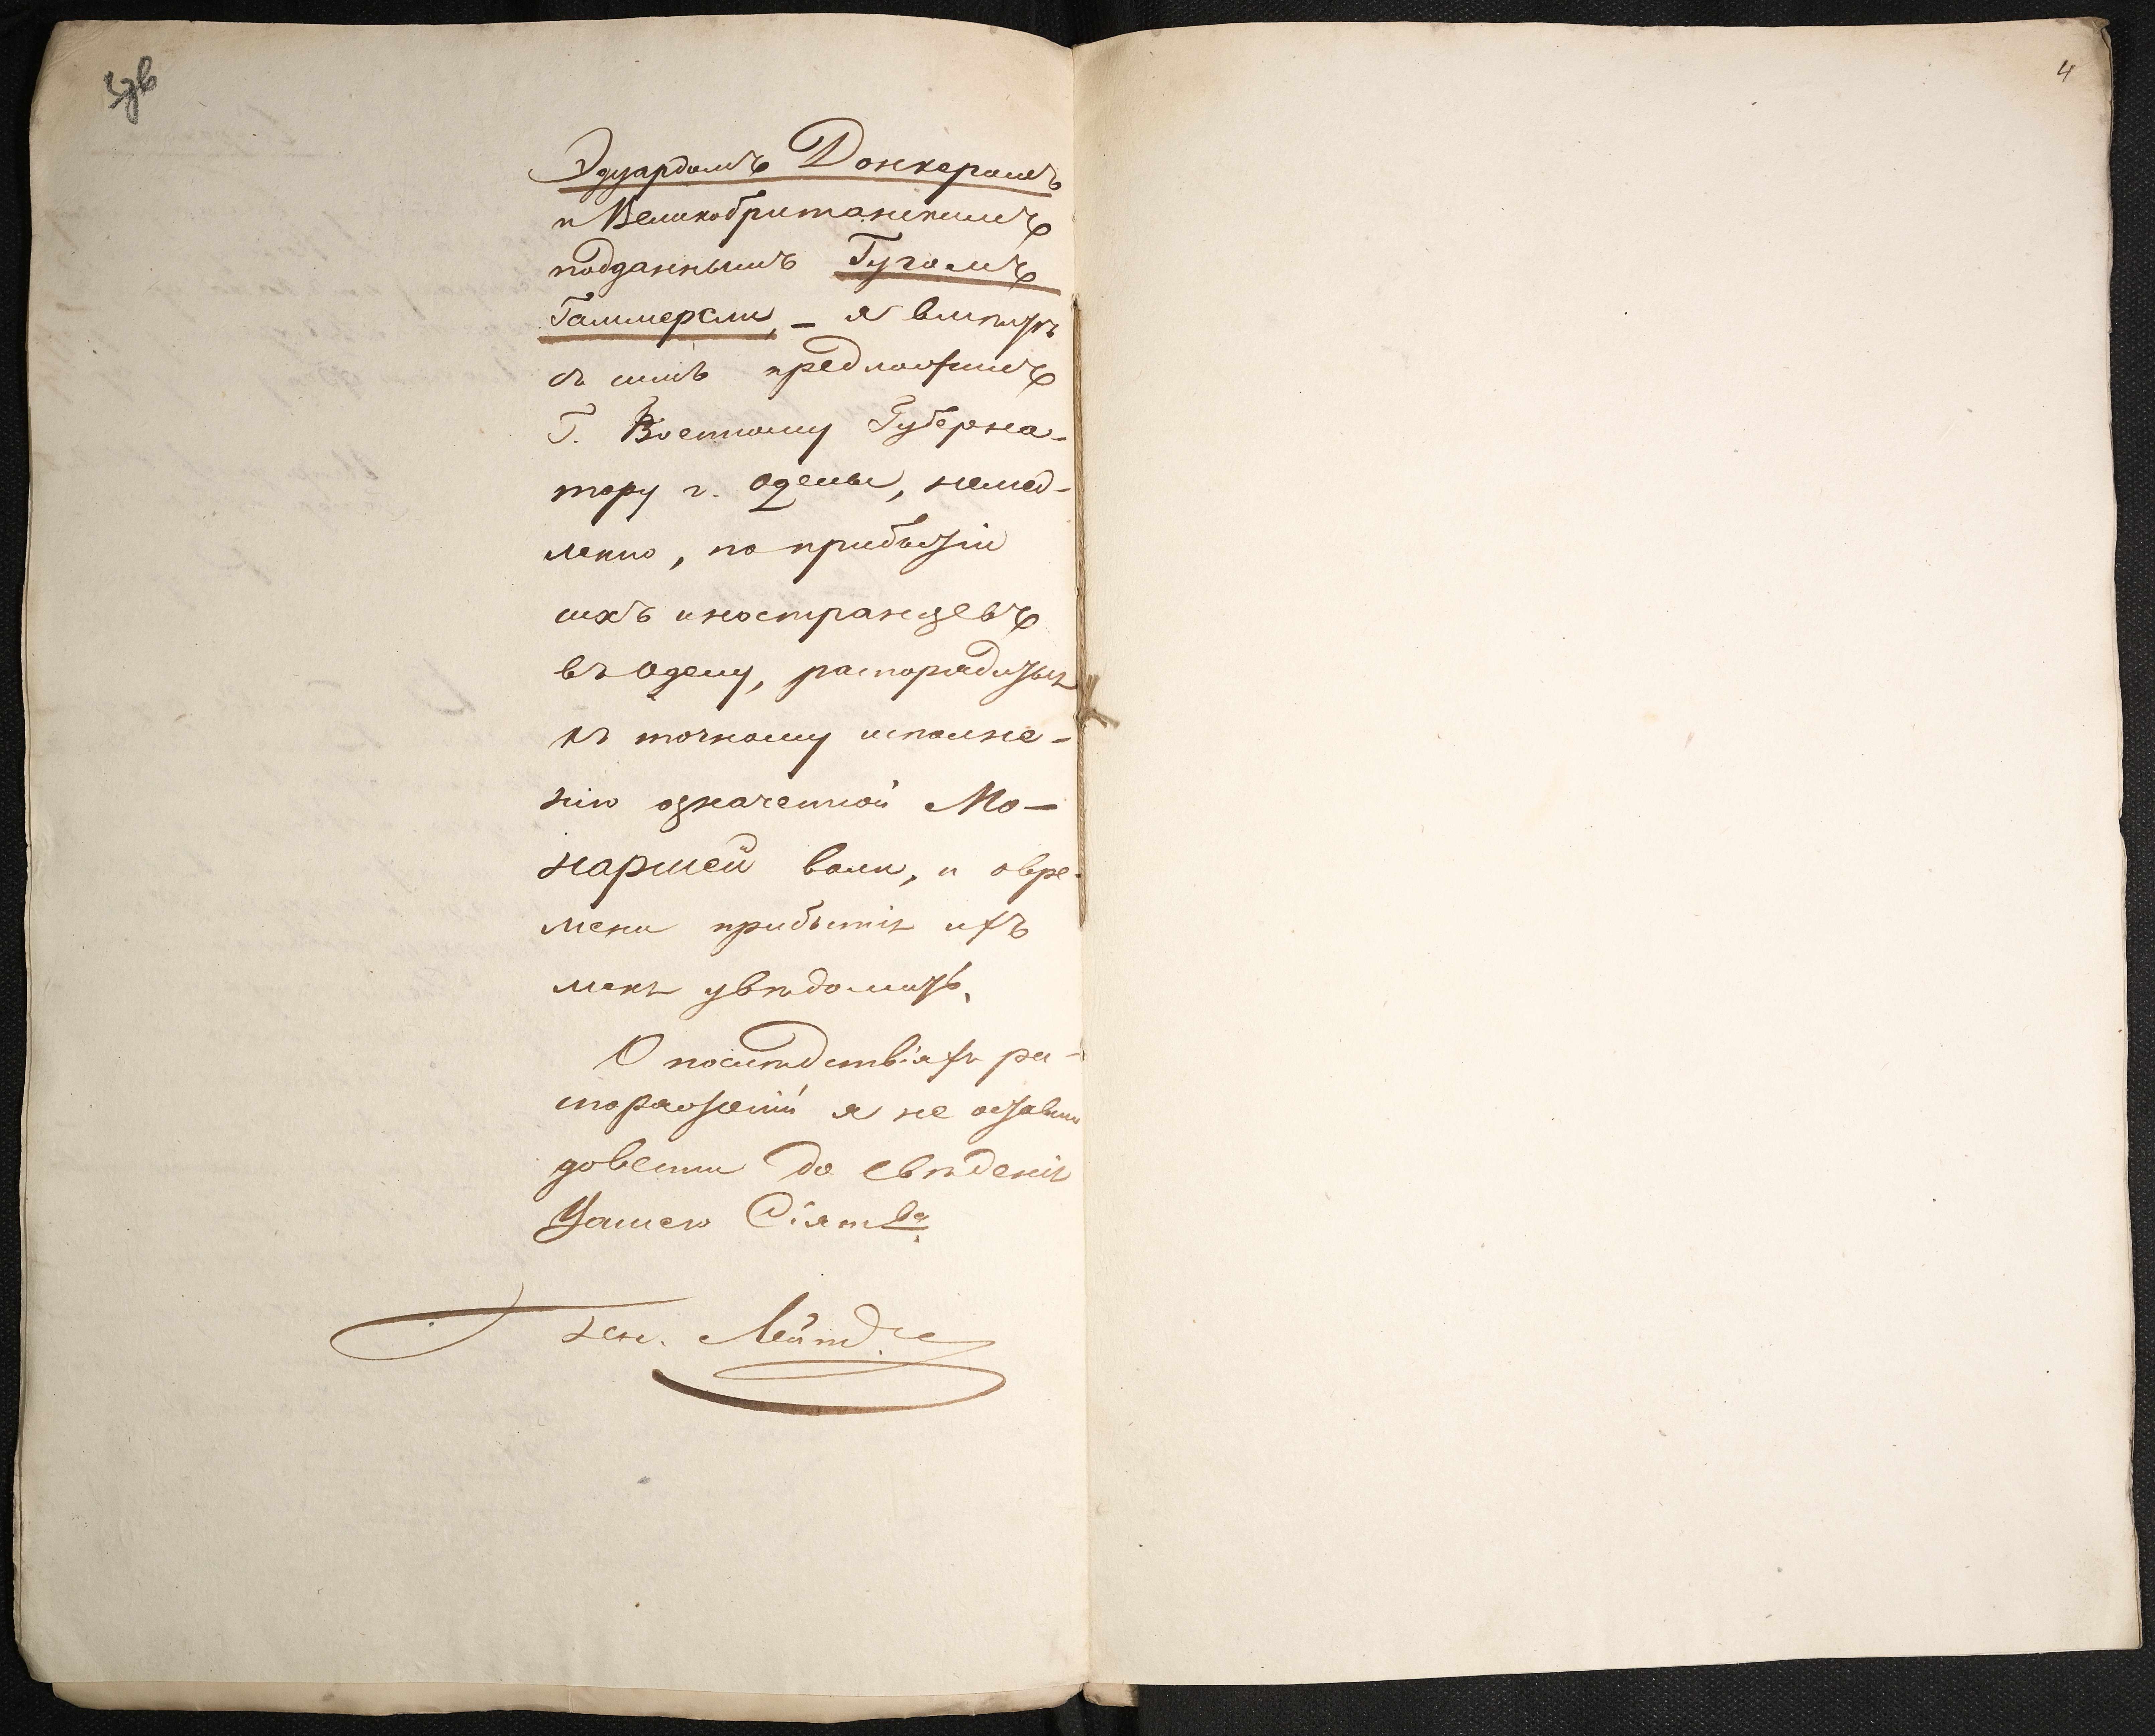 Эдуардомъ Донкеромъ
и Великобританскимъ
подданнымъ Гугомъ
Гаммерсли, – я вместѣ
съ симъ предложилъ
Г. Военному Губерна-
тору г. Одессы, немед-
ленно, по прибытіи
сихъ иностранцевъ
въ Одессу, распорядиться
къ точному исполне-
нію означенной Мо-
наршей воли, и о вре-
мени прибытія ихъ
меня увѣдомить.
О послѣдствіяхъ рас-
поряженій я не оставлю
довести до свѣденія
Вашего Сіятва.
Ген. Лейт.
4